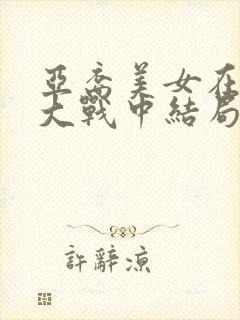 亞裔美女在
大戰中結局
許辭涼